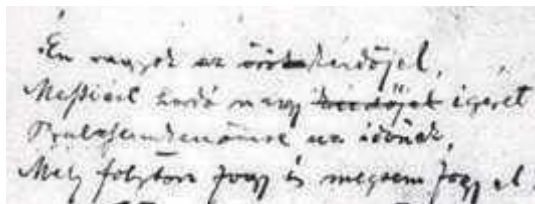 Én vagyok az örök kérdőjel,
Messiást hordó nagy kérdőjel igéret
az időnek,
Mely folyton fogy és mégsem fogy el